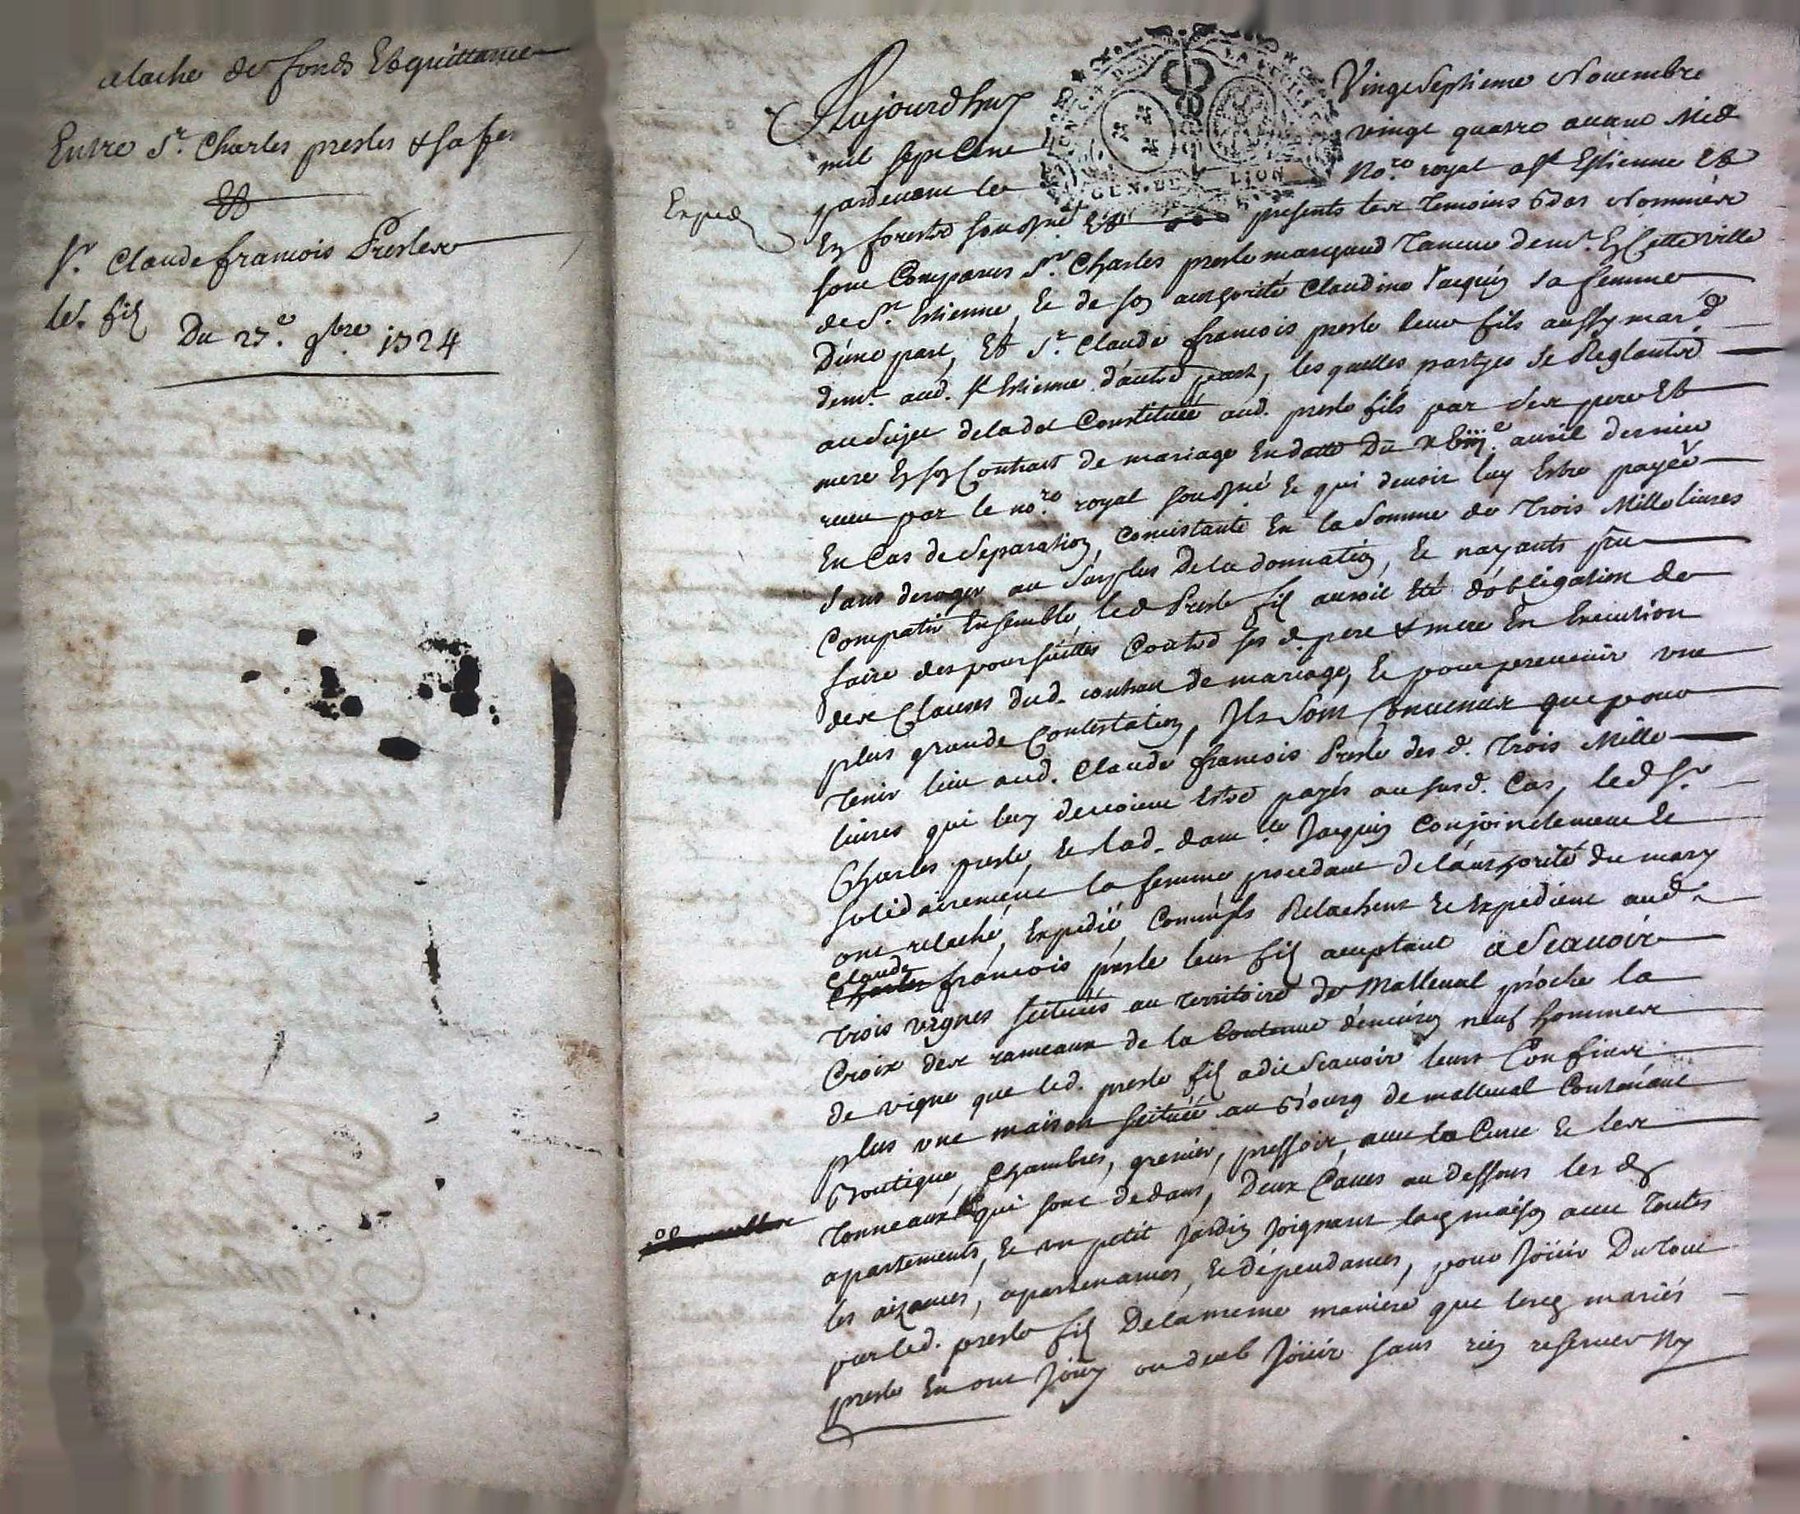 relache de fonds Et quittance
Entre Sr. Charles presles & sa fe
Et
Sr. Claude francois Presles
les. fils
Du 27e. 9bre. 1724
Aujourdhuy Vingt Septieme Novembre
mil sept Cent vingt quatre avant Midi
pardevant le Nore. royal a St Estienne Et
En forests sousigné Et presents les temoins bas Nommés
sont Comparus Sr. Charles presle marchand Taneur demt. En Cette ville
de St. Estienne, Et de son authorité Claudine Jacquin sa femme
D'une part, Et Sr. Claude francois presle leur fils aussy mard.
demt. aud. St Estienne d'autre part, lesquelles partyes se Reglants
au Sujet de la dot Constituée aud. presle fils par Ses pere Et
mere En son Contrat de mariage En datte Du avril dernier
receu par le nore. royal sousigné Et qui devoit luy Estre payée
En Cas de Separation, Concistante En la Somme de Trois Mille livres
sans deroger au Surplus De la donnation, Et n'ayants peu
Compatir Ensemble, led Presle fils auroit Eté d'obligation de
faire des poursuittes Contre ses d. pere & mere En Execution
des Clauses dud. contrat de mariage, Et pour prevenir une
plus grande Contestation, Ils Sont Convenus que pour
Tenir lieu aud. Claude francois Presle des d. Trois Mille
livres qui luy devoient Estre payés au susd. Cas, led Sr.
Charles presle, Et lad. damlle Jacquin Conjointement Et
solidairement la femme procedant de l'authorité du mary
ont relaché, Expedié, Comme ils Relachent Et Expedient aud.
Claude
Charles francois presle leur fils acceptant a Scavoir
Trois vignes scituées au Territoire de Malleval proche la
Croix des rameaux de la Contenue d'environ neuf hommes
de vigne que led. presle fils a dit Scavoir leurs Confins
plus une maison scituée au Bourg de malleval Contenant
Boutique, Chambres, grenier, pressoir, avec la Cuve Et les
Tonneaux qui sont dedans, Deux Caves au dessous les d.
apartements, Et un petit Jardin Joignant lad maison avec Toutes
les aizances, apartenances, Et dépendances, pour Joüir Du Tout
par led. presle fils De la meme maniere que lesd mariés
presle En ont Jouy ou deub Joüir sans rien reserver Ny